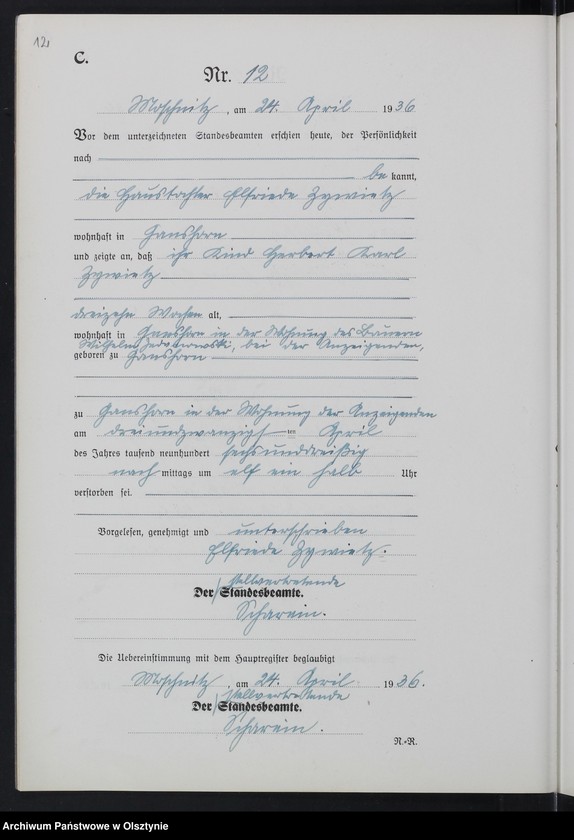 12
C.
Nr. 12
Moschnitz, am 24. April 1936
Vor dem unterzeichneten Standesbeamten erschien heute, der Persönlichkeit
nach
be kannt,
die Haustochter Elfriede Zywietz
wohnhaft in Ganshorn
und zeigte an, daß ihr Kind Herbert Karl
Zywietz
dreizehn Wochen alt,
wohnhaft in Ganshorn in der Wohnung des Bauern
Wilhelm bei der Anzeigenden,
geboren zu Ganshorn
zu Ganshorn in der Wohnung der Anzeigenden
am dreiundzwanzigsten April
des Jahres tausend neunhundert sechsunddreißig
nach mittags um elf ein halb Uhr
verstorben sei.
Vorgelesen, genehmigt und unterschrieben
Elfriede Zywietz.
stellvertretende
Der Standesbeamte.
Scharein.
Die Uebereinstimmung mit dem Hauptregister beglaubigt
Moschnitz, am 24. April 1936.
stellvertretende
Der Standesbeamte.
Scharein.
R.-R.
Archiwum Państwowe w Olsztynie